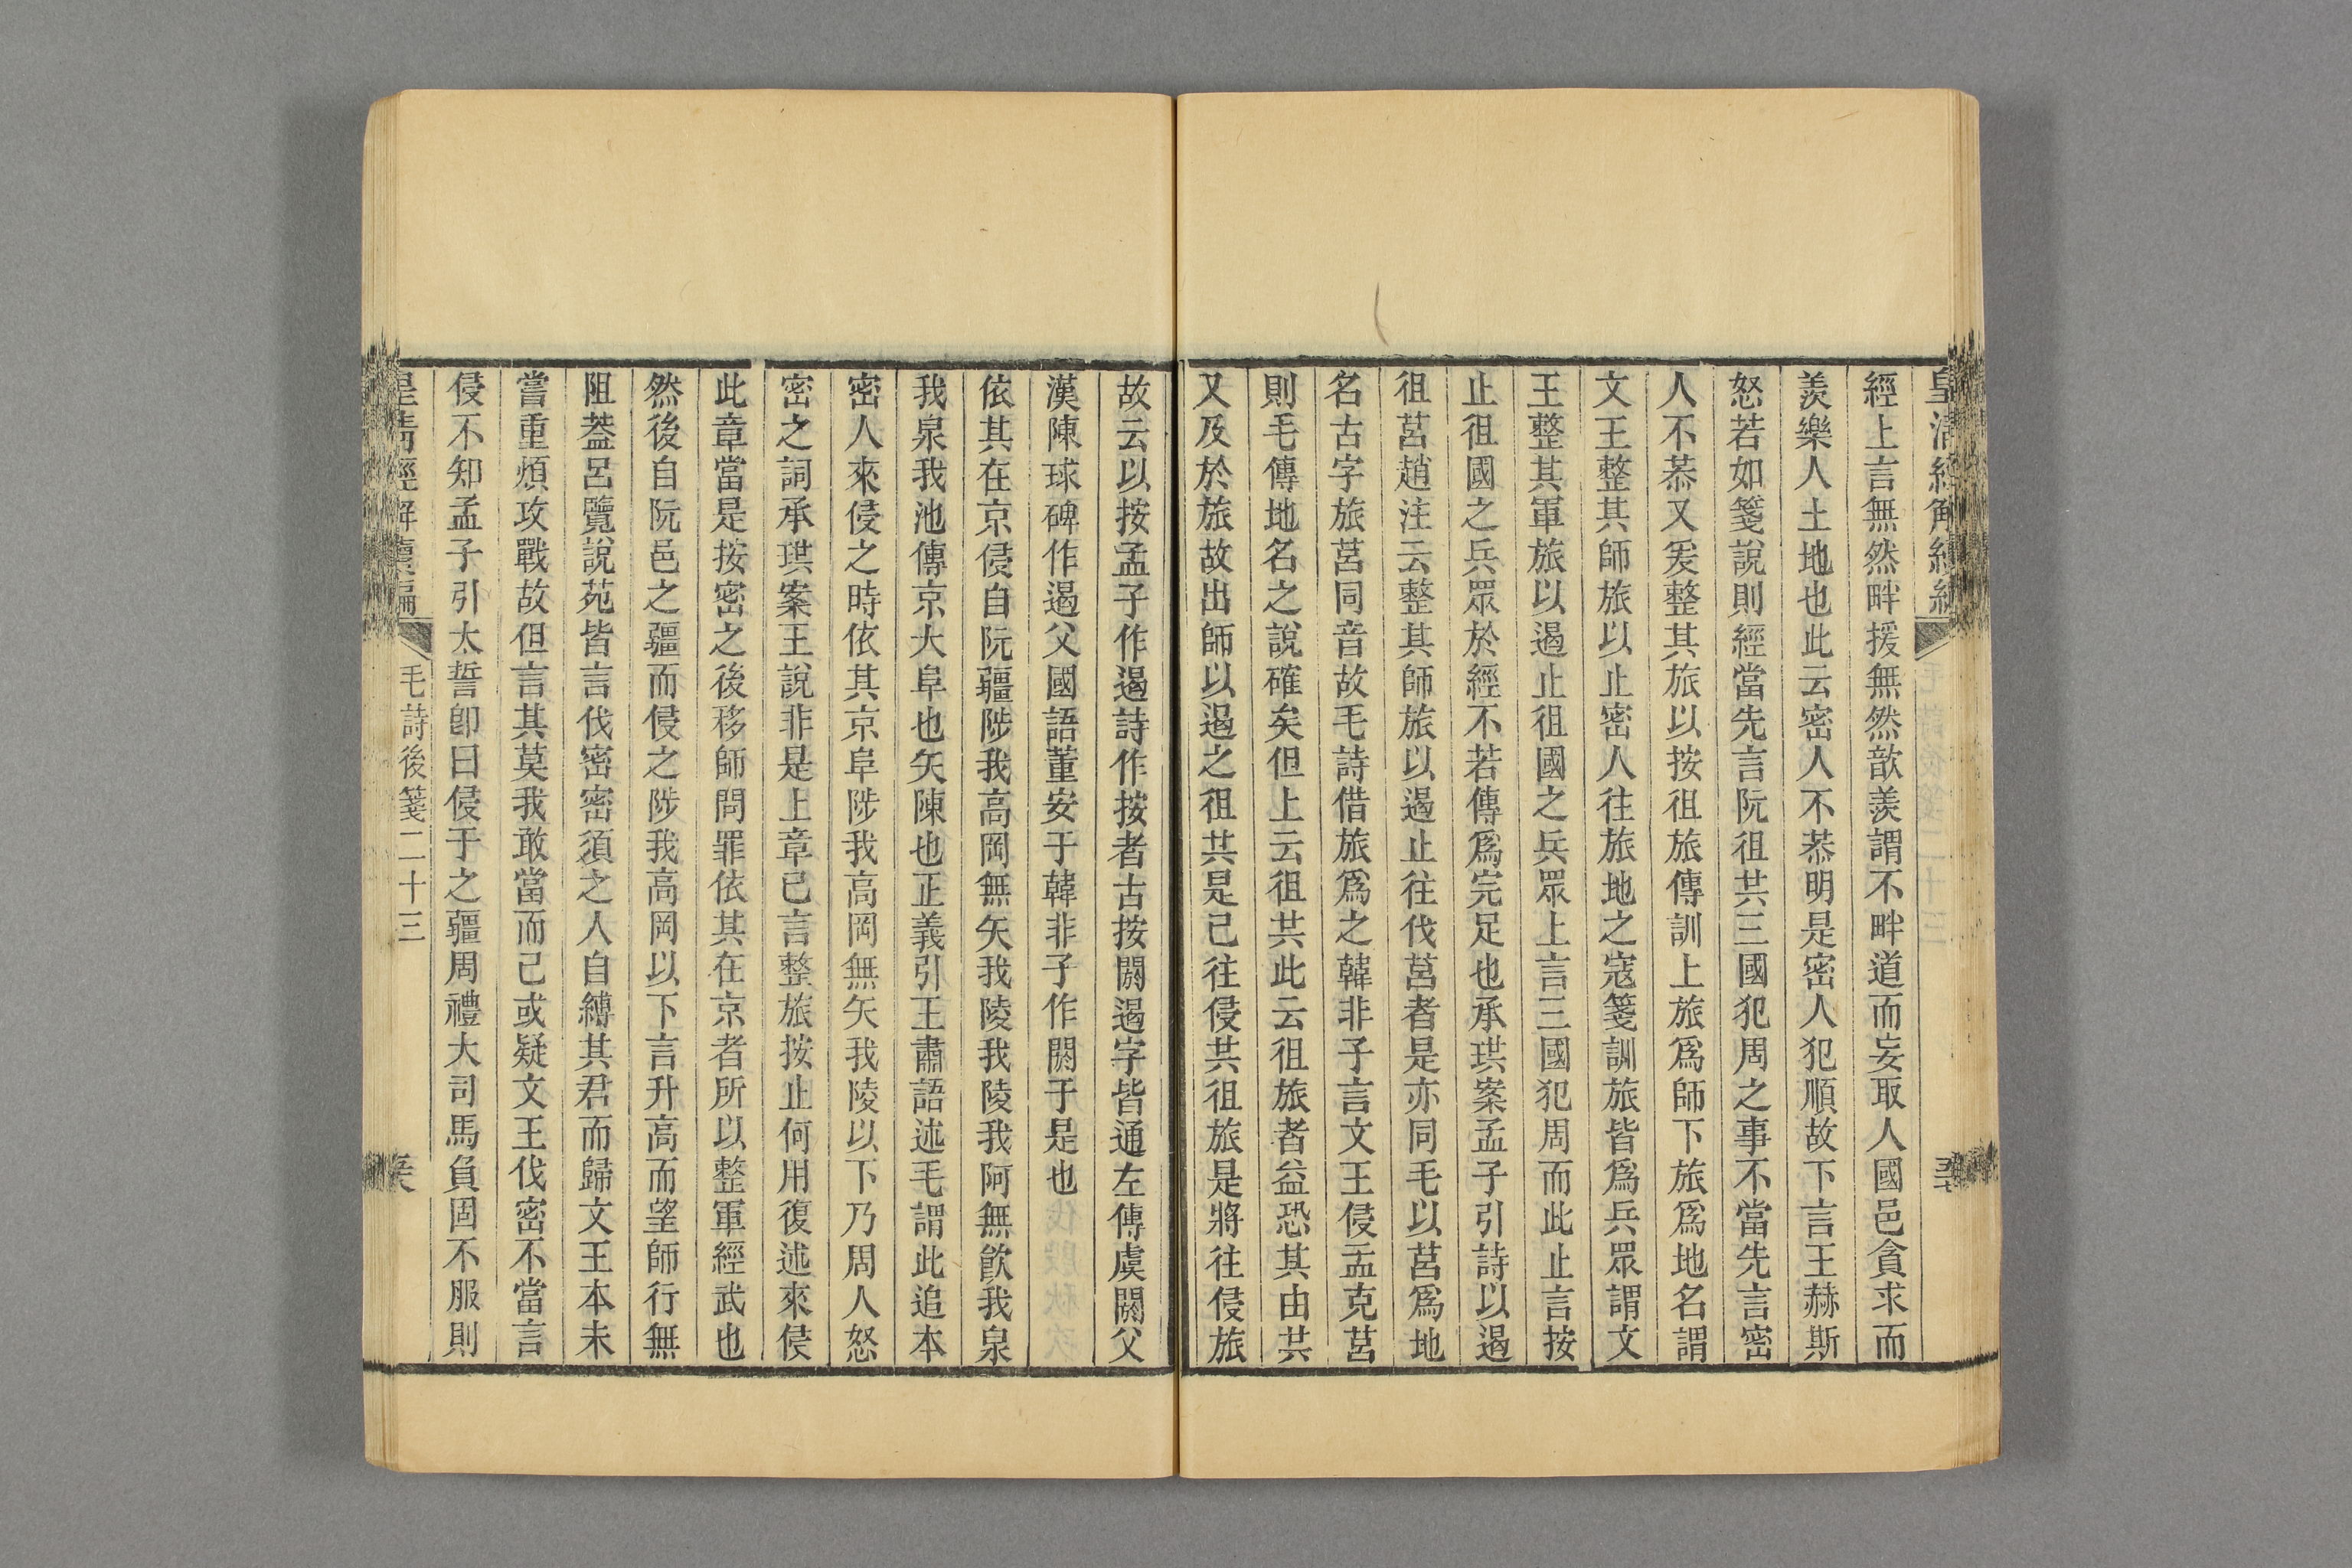 經上言無然畔援無然歆羨謂不畔道而妄取人國邑貪求而
羨樂人土地也此云密人不恭明是密人犯順故下言王赫斯
怒若如箋說則經當先言阮徂共三國犯周之事不當先言密
人不恭又爰整其旅以按徂旅傳訓上旅爲師下旅爲地名謂
文王整其師旅以止密人往旅地之寇箋訓旅皆爲兵眾謂文
王整其軍旅以遏止徂國之兵眾上言三國犯周而此止言按
止徂國之兵眾於經不若傳爲完足也承珙案孟子引詩以遏
徂莒趙注云整其師旅以遏止往伐莒者是亦同毛以莒爲地
名古字旅莒同音故毛詩借旅爲之韓非子言文王侵孟克莒
則毛傳地名之說確矣但上云徂共此云徂旅者益恐其由共
又及於旅故出師以遏之徂共是已往侵共徂旅是將往侵旅
故云以按孟子作遏詩作按者古按閼遏字皆通左傳虞閼父
漢陳球碑作遏父國語董安于韓非子作閼于是也
依其在京侵自阮疆陟我高岡無矢我陵我陵我阿無飲我泉
我泉我池傳京大阜也矢陳也正義引王肅語述毛謂此追本
密人來侵之時依其京阜陟我高岡無矢我陵以下乃周人怒
密之詞承珙案王說非是上章已言整旅按止何用復述來侵
此章當是按密之後移師問罪依其在京者所以整軍經武也
然後自阮邑之疆而侵之陟我高岡以下言升高而望師行無
阻葢呂覽說苑皆言伐密密須之人自縛其君而歸文王本未
嘗重煩攻戰故但言其莫我敢當而已或疑文王伐密不當言
侵不知孟子引太誓卽曰侵于之疆周禮大司馬負固不服則
皇清經解續編 毛詩後箋二十三